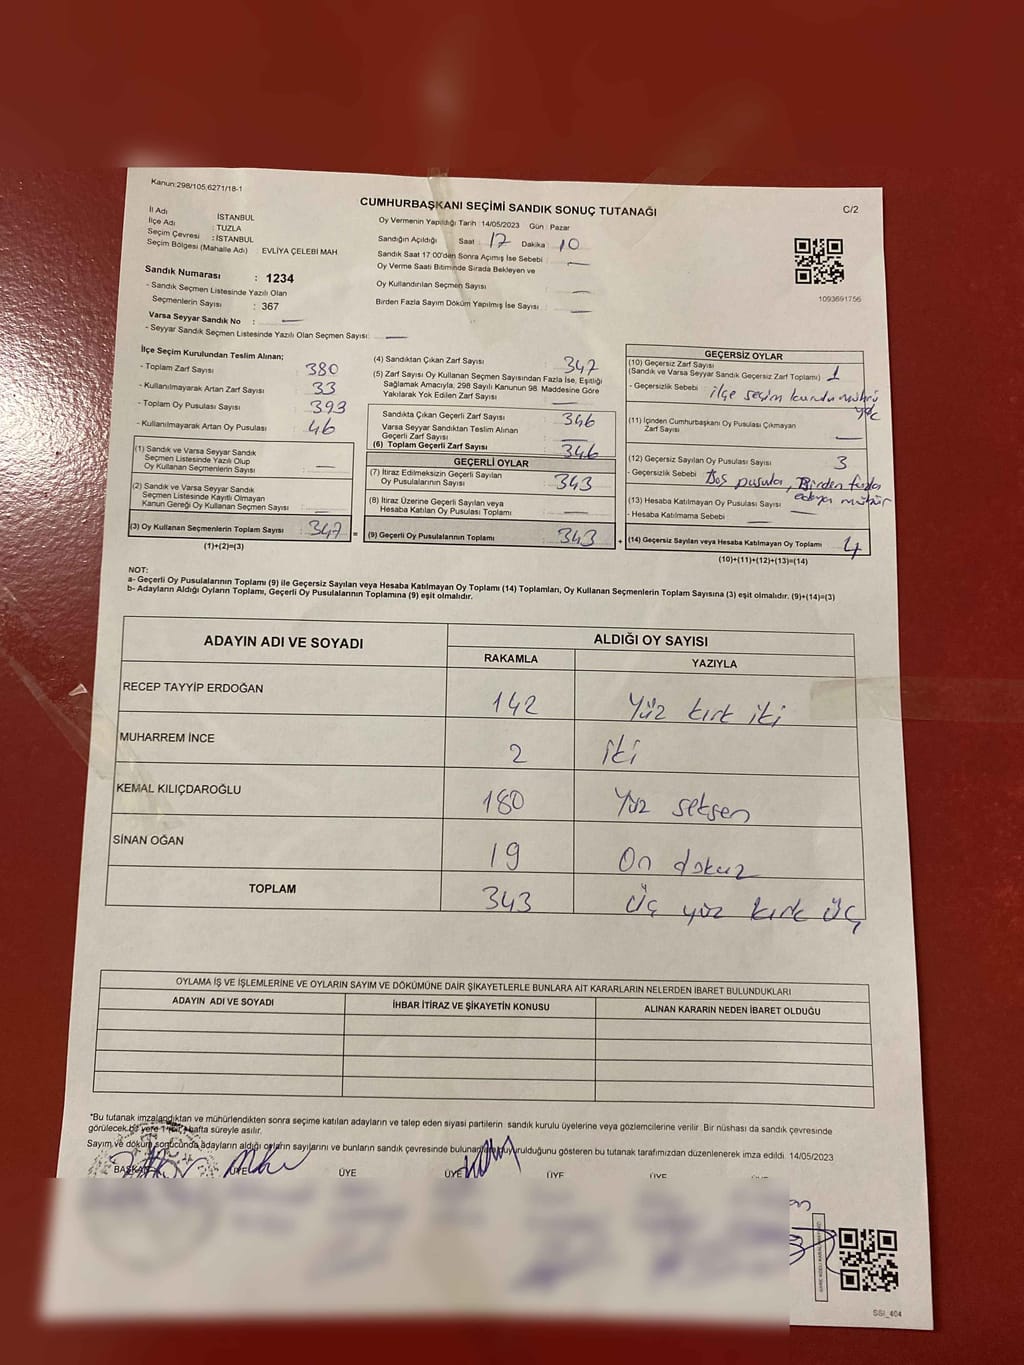 Kanun:298/105;6271/18-1
CUMHURBAŞKANI SEÇİMİ SANDIK SONUÇ TUTANAĞI
C/2
İl Adı : İSTANBUL
İlçe Adı : TUZLA
Seçim Çevresi : İSTANBUL
Seçim Bölgesi (Mahalle Adı) : EVLİYA ÇELEBİ MAH
Sandık Numarası : 1234
- Sandık Seçmen Listesinde Yazılı Olan
Seçmenlerin Sayısı : 367
Varsa Seyyar Sandık No : —
- Seyyar Sandık Seçmen Listesinde Yazılı Olan Seçmen Sayısı: —
Oy Vermenin Yapıldığı Tarih : 14/05/2023 Gün : Pazar
Sandığın Açıldığı Saat : 17 Dakika : 10
Sandık Saat 17:00'den Sonra Açımış İse Sebebi : —
Oy Verme Saati Bitiminde Sırada Bekleyen ve
Oy Kullandırılan Seçmen Sayısı : —
Birden Fazla Sayım Döküm Yapılmış İse Sayısı : —
1093691756
İlçe Seçim Kurulundan Teslim Alınan;
- Toplam Zarf Sayısı : 380
- Kullanılmayarak Artan Zarf Sayısı : 33
- Toplam Oy Pusulası Sayısı : 393
- Kullanılmayarak Artan Oy Pusulası : 46
(1) Sandık ve Varsa Seyyar Sandık
Seçmen Listesinde Yazılı Olup
Oy Kullanan Seçmenlerin Sayısı : —
(2) Sandık ve Varsa Seyyar Sandık
Seçmen Listesinde Kayıtlı Olmayan
Kanun Gereği Oy Kullanan Seçmen Sayısı : —
(3) Oy Kullanan Seçmenlerin Toplam Sayısı : 347
(1)+(2)=(3)
(4) Sandıktan Çıkan Zarf Sayısı : 347
(5) Zarf Sayısı Oy Kullanan Seçmen Sayısından Fazla İse, Eşitliği
Sağlamak Amacıyla, 298 Sayılı Kanunun 98. Maddesine Göre
Yakılarak Yok Edilen Zarf Sayısı : —
Sandıkta Çıkan Geçerli Zarf Sayısı : 346
Varsa Seyyar Sandıktan Teslim Alınan
Geçerli Zarf Sayısı : —
(6) Toplam Geçerli Zarf Sayısı : 346
GEÇERLİ OYLAR
(7) İtiraz Edilmeksizin Geçerli Sayılan
Oy Pusulalarının Sayısı : 343
(8) İtiraz Üzerine Geçerli Sayılan veya
Hesaba Katılan Oy Pusulası Toplamı : —
= (9) Geçerli Oy Pusulalarının Toplamı : 343 +
GEÇERSİZ OYLAR
(10) Geçersiz Zarf Sayısı
(Sandık ve Varsa Seyyar Sandık Geçersiz Zarf Toplamı) : 1
- Geçersizlik Sebebi : ilçe seçim kurulu mührü
yok
(11) İçinden Cumhurbaşkanı Oy Pusulası Çıkmayan
Zarf Sayısı : —
(12) Geçersiz Sayılan Oy Pusulası Sayısı : 3
- Geçersizlik Sebebi : Boş pusula, Birden fazla
adaya mühür
(13) Hesaba Katılmayan Oy Pusulası Sayısı : —
- Hesaba Katılmama Sebebi : —
(14) Geçersiz Sayılan veya Hesaba Katılmayan Oy Toplamı : 4
(10)+(11)+(12)+(13)=(14)
NOT:
a- Geçerli Oy Pusulalarının Toplamı (9) ile Geçersiz Sayılan veya Hesaba Katılmayan Oy Toplamı (14) Toplamları, Oy Kullanan Seçmenlerin Toplam Sayısına (3) eşit olmalıdır. (9)+(14)=(3)
b- Adayların Aldığı Oyların Toplamı, Geçerli Oy Pusulalarının Toplamına (9) eşit olmalıdır.
ADAYIN ADI VE SOYADI
ALDIĞI OY SAYISI
RAKAMLA YAZIYLA
RECEP TAYYİP ERDOĞAN 142 Yüz kırk iki
MUHARREM İNCE 2 iki
KEMAL KILIÇDAROĞLU 180 Yüz seksen
SİNAN OĞAN 19 On dokuz
TOPLAM 343 Üç yüz kırk üç
OYLAMA İŞ VE İŞLEMLERİNE VE OYLARIN SAYIM VE DÖKÜMÜNE DAİR ŞİKAYETLERLE BUNLARA AİT KARARLARIN NELERDEN İBARET BULUNDUKLARI
ADAYIN ADI VE SOYADI İHBAR İTİRAZ VE ŞİKAYETİN KONUSU ALINAN KARARIN NEDEN İBARET OLDUĞU
*Bu tutanak imzalandıktan ve mühürlendikten sonra seçime katılan adayların ve talep eden siyasi partilerin sandık kurulu üyelerine veya gözlemcilerine verilir. Bir nüshası da sandık çevresinde
görülecek bir yere 1 hafta süreyle asılır.
Sayım ve döküm sonucunda adayların aldığı oyların sayılarını ve bunların sandık çevresinde bulunanlara duyurulduğunu gösteren bu tutanak tarafımızdan düzenlenerek imza edildi. 14/05/2023
BAŞKAN ÜYE ÜYE ÜYE ÜYE ÜYE ÜYE
SSI_404